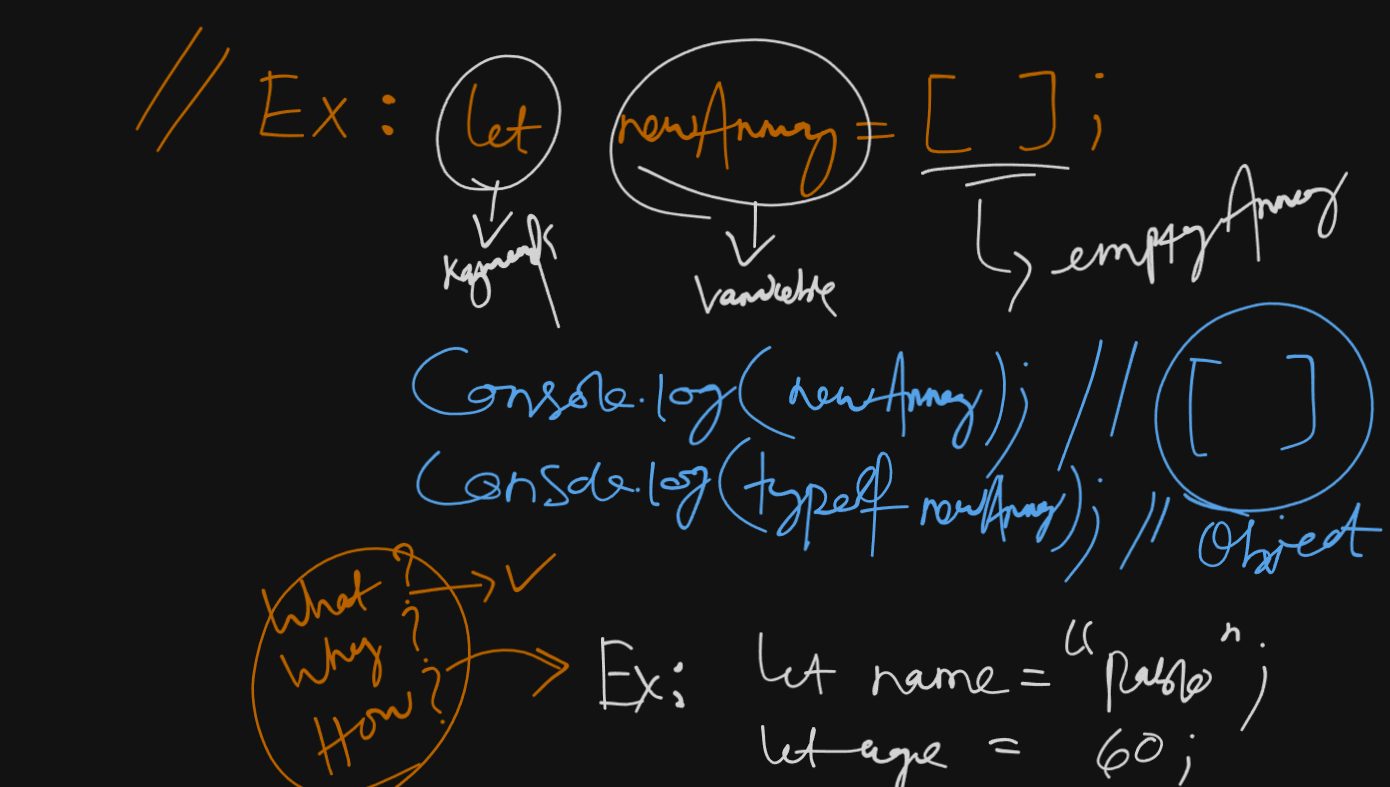 // Ex: let newArray = [ ];
Keyword
Variable
emptyArray
Console.log(newArray); // [ ]
Console.log(typeof newArray); // Object
What?
Why?
How?
Ex: let name = "pablo";
let age = 60;